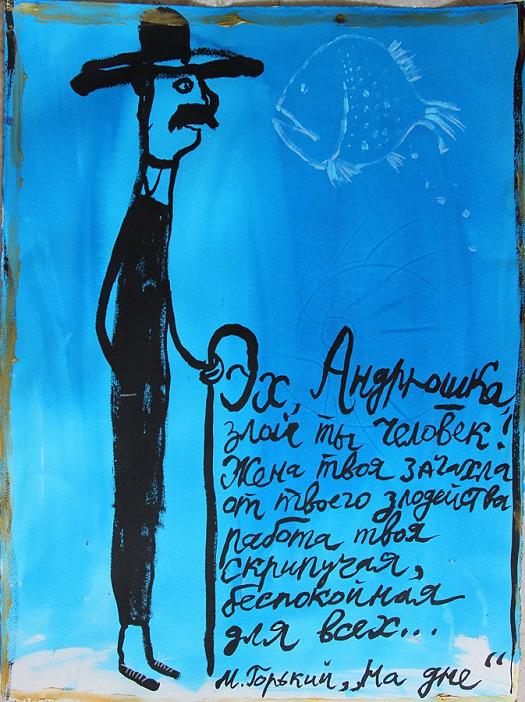 Эх, Андрюшка,
злой ты человек!
Жена твоя зачахла
от твоего злодейства
работа твоя
скрипучая,
беспокойная
для всех...
М. Горький „На дне“